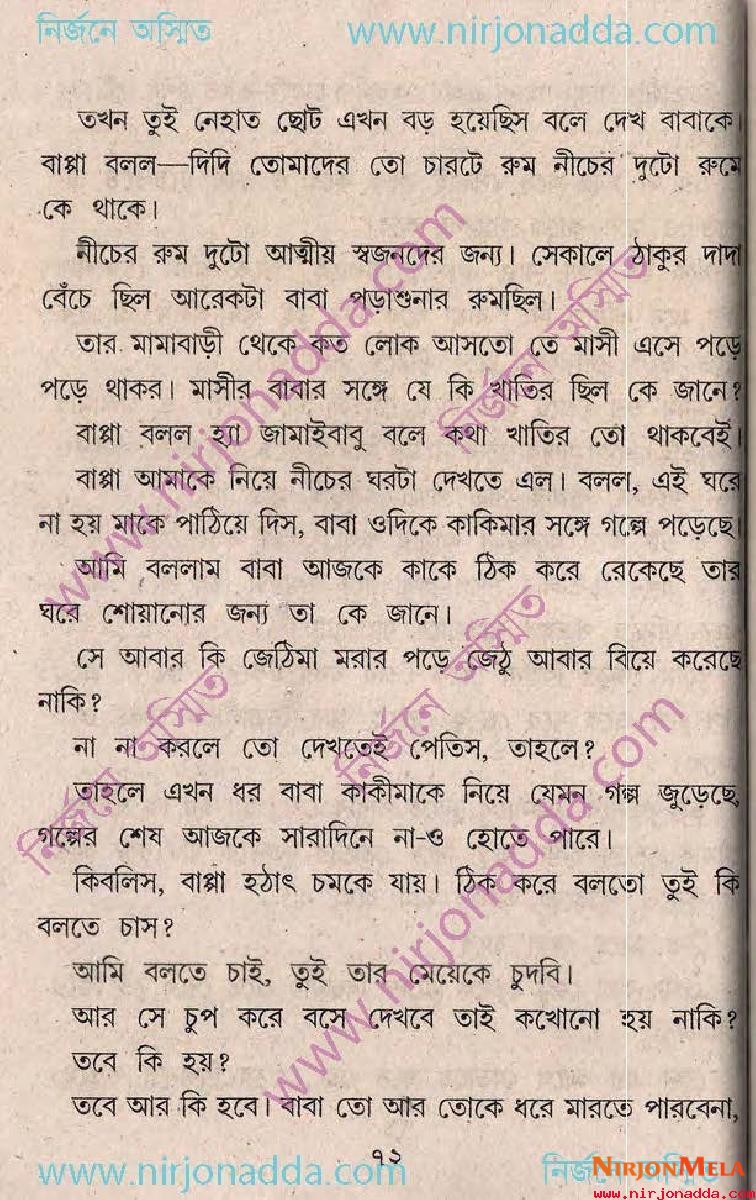 নির্জনে অস্মিত www.nirjonadda.com
তখন তুই নেহাত ছোট এখন বড় হয়েছিস বলে দেখ বাবাকে।
বাপ্পা বলল—দিদি তোমাদের তো চারটে রুম নীচের দুটো রুমে
কে থাকে।
নীচের রুম দুটো আত্মীয় স্বজনদের জন্য। সেকালে ঠাকুর দাদা
বেঁচে ছিল আরেকটা বাবা পড়াশুনার রুমছিল।
তার মামাবাড়ী থেকে কত লোক আসতো তে মাসী এসে পড়ে
পড়ে থাকর। মাসীর বাবার সঙ্গে যে কি খাতির ছিল কে জানে?
বাপ্পা বলল হ্যা জামাইবাবু বলে কথা খাতির তো থাকবেই।
বাপ্পা আমাকে নিয়ে নীচের ঘরটা দেখতে এল। বলল, এই ঘরে
না হয় মাকে পাঠিয়ে দিস, বাবা ওদিকে কাকিমার সঙ্গে গল্পে পড়েছে।
আমি বললাম বাবা আজকে কাকে ঠিক করে রেকেছে তার
ঘরে শোয়ানোর জন্য তা কে জানে।
সে আবার কি জেঠিমা মরার পড়ে জেঠু আবার বিয়ে করেছে
নাকি?
না না করলে তো দেখতেই পেতিস, তাহলে?
তাহলে এখন ধর বাবা কাকীমাকে নিয়ে যেমন গল্প জুড়েছে,
গল্পের শেষ আজকে সারাদিনে না-ও হোতে পারে।
কিবলিস, বাপ্পা হঠাৎ চমকে যায়। ঠিক করে বলতো তুই কি
বলতে চাস?
আমি বলতে চাই, তুই তার মেয়েকে চুদবি।
আর সে চুপ করে বসে দেখবে তাই কখোনো হয় নাকি?
তবে কি হয়?
তবে আর কি হবে। বাবা তো আর তোকে ধরে মারতে পারবেনা,
৭২
www.nirjonadda.com নির্জনে অস্মিত
NIRJONMELA
www.nirjonadda.com
www.nirjonadda.com
নির্জনে অস্মিত
নির্জনে অস্মিত
নির্জনে অস্মিত
www.nirjonadda.com